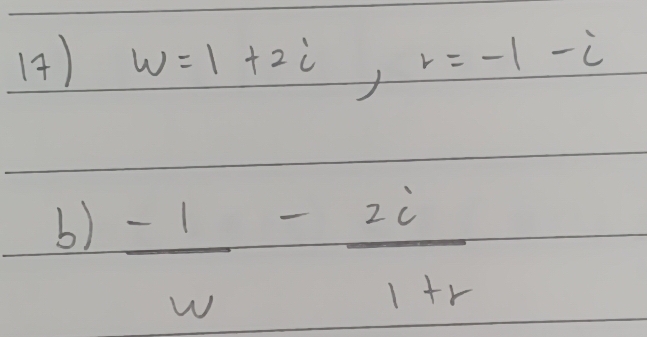 17) w = 1 + 2i , r = -1 - i
b) -1/w - 2i/1+r